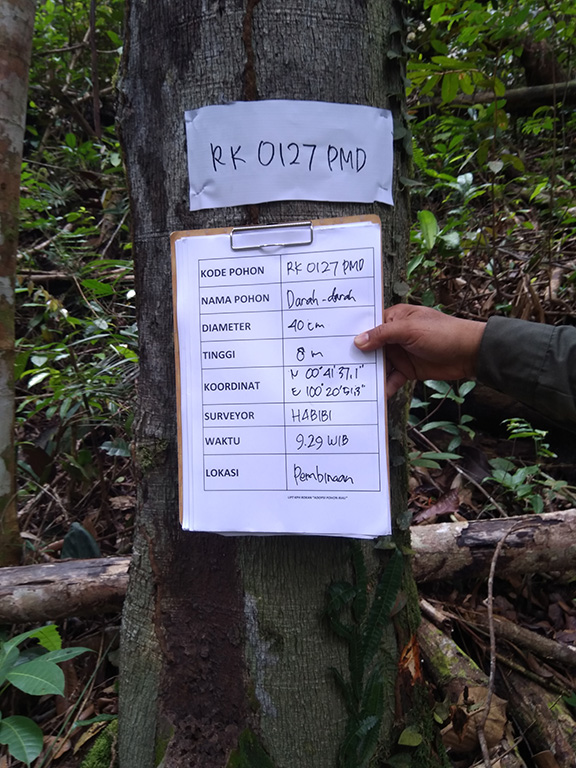 RK 0127 PMD
KODE POHON RK 0127 PMD
NAMA POHON Darah-darah
DIAMETER 40 cm
TINGGI 8 m
KOORDINAT N 00°41'37,1"
E 100°20'51,3"
SURVEYOR HABIBI
WAKTU 9.29 WIB
LOKASI Pembinaan
UPT KPH ROKAN "ADOPSI POHON RIAU"